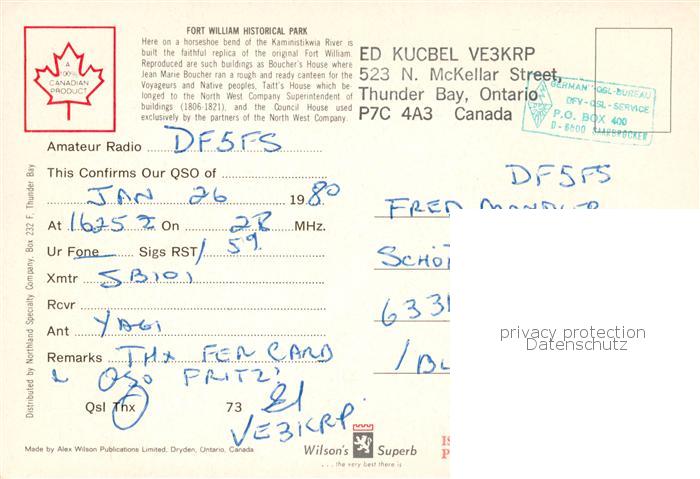 A
100%
CANADIAN
PRODUCT
FORT WILLIAM HISTORICAL PARK
Here on a horseshoe bend of the Kaministikwia River is
built the faithful replica of the original Fort William.
Reproduced are such buildings as Boucher's House where
Jean Marie Boucher ran a rough and ready canteen for the
Voyageurs and Native peoples, Tatt's House which be-
longed to the North West Company Superintendent of
buildings (1806-1821), and the Council House used
exclusively by the partners of the North West Company.
ED KUCBEL VE3KRP
523 N. McKellar Street,
Thunder Bay, Ontario
P7C 4A3 Canada
GERMAN-QSL-BUREAU
DFV-QSL-SERVICE
P.O. BOX 400
D-6600 SAARBRÜCKEN
Amateur Radio DF5FS
This Confirms Our QSO of
JAN 26 1980
At 1625 Z On 28 MHz.
Ur Fone Sigs RST/ 59
Xmtr SB101
Rcvr
Ant YAGI
Remarks THX FER CARD
& QSO FRITZ!
Qsl Thx 73 Ed
VE3KRP
DF5FS
FRED
SCHÖ
633
/BL
privacy protection
Datenschutz
Distributed by Northland Specialty Company, Box 232 F, Thunder Bay
Made by Alex Wilson Publications Limited, Dryden, Ontario, Canada
Wilson's Superb
... the very best there is